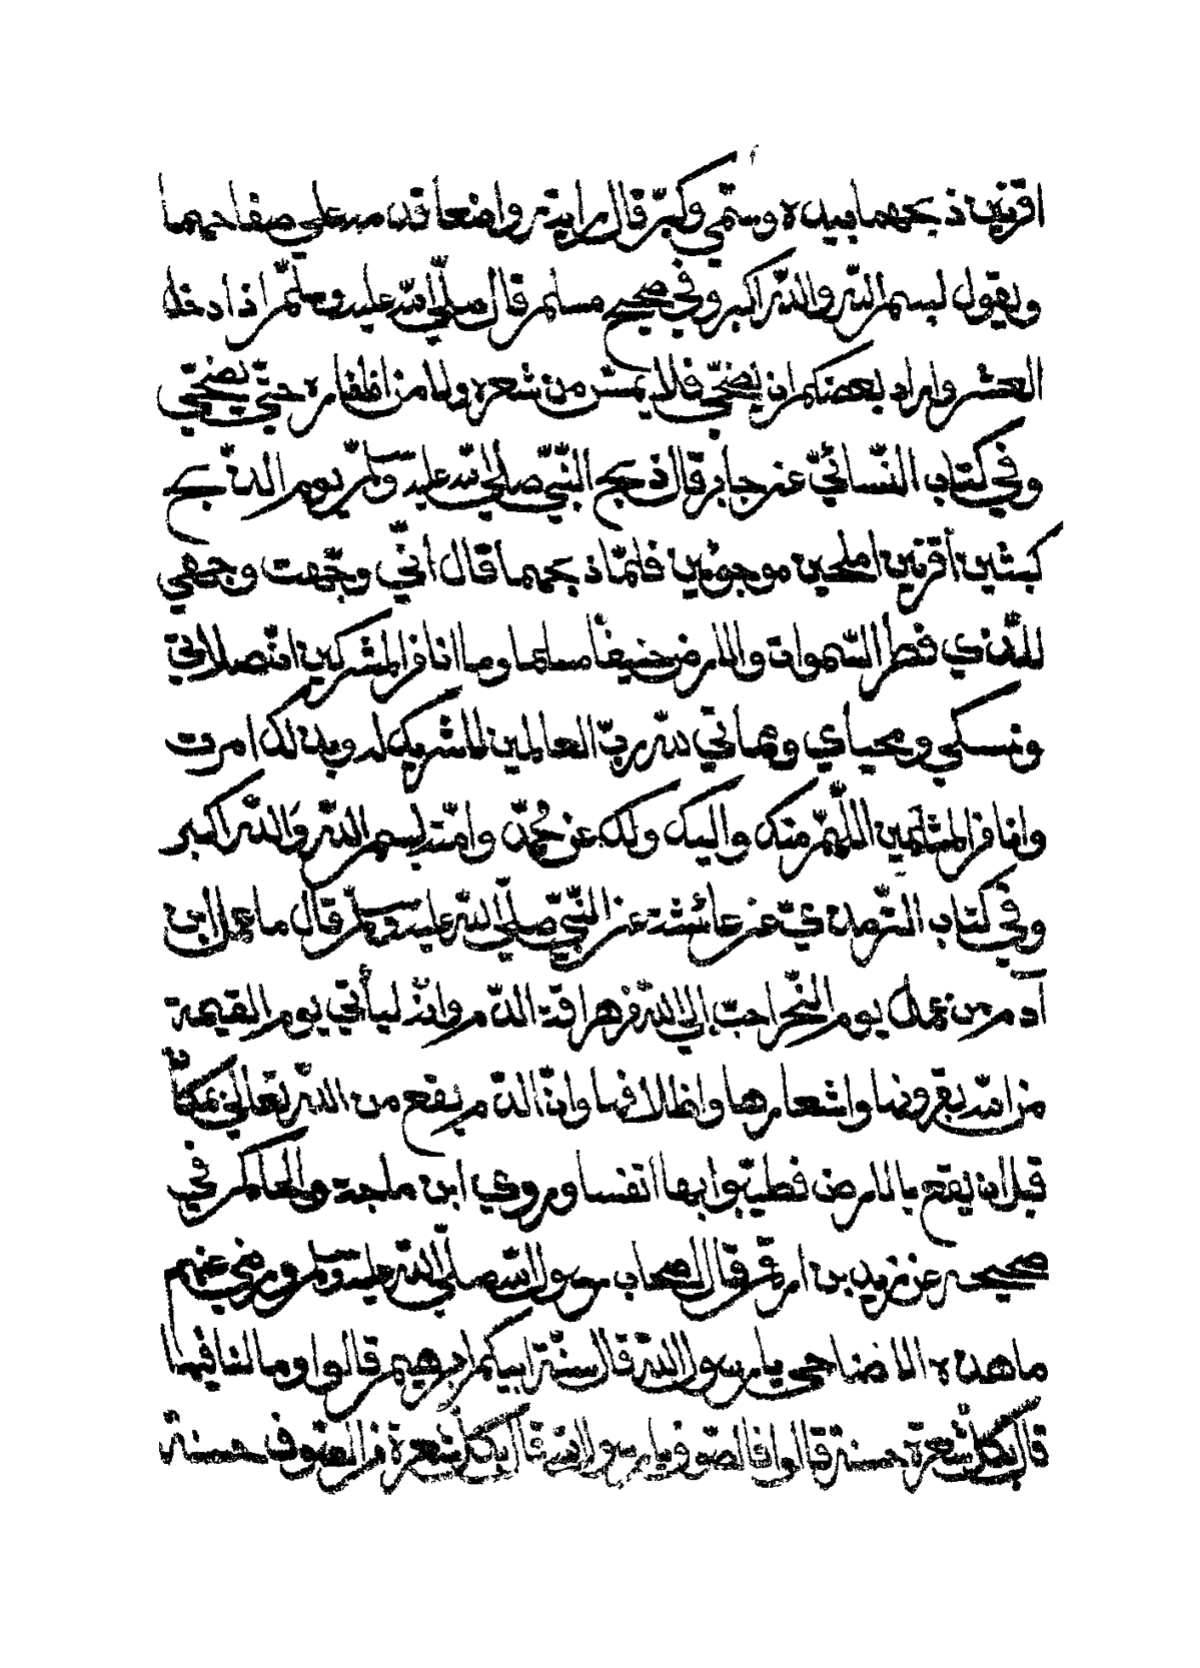 اقرنين ذبحهما بيده وسمّى وكبّر قال رايته واضعا قدمه على صفاحهما
ويقول بسم الله والله اكبر وفي صحيح مسلم قال صلّى الله عليه وسلّم اذا دخل
العشر واراد بعضكم ان يضحّي فلا يمسّ من شعره ولا من اظفاره حتّى يضحّي
وفي كتاب النّسائيّ عن جابر قال ذبح النّبيّ صلى الله عليه وسلّم يوم الذبح
كبشين أقرنين املحين موجوئين فلمّا ذبحهما قال أنّي وجّهت وجهي
للّذي فطر السّموات والارض حنيفاً مسلما وما انا من المشركين انّ صلاتي
ونسكي ومحياي ومماتي لله ربّ العالمين لا شريك له وبذلك امرت
وانا من المسلمين اللّهمّ منك واليك ولك عن محُمّد وامّته بسم الله وَالله اكبر
وفي كتاب التّرمذيّ عن عائشة عن النّبيّ صلّى الله عليه وسلم قال ما عمل ابن
آدم من عمل يوم النّحر احبّ الى الله من هراقة الدّم وانّه ليأتي يوم القيمة
من امّته بقرونها واشعارها واظلافها وانّ الدّم يقع من الله تعالى بمكانٍ
قبل ان يقع بالارض فطيّبوا بها انفسا وروي ابن ماجة والحاكم في
صحيحه عن زيد بن ارقم قال قال اصحاب رسول الله صلّى الله عليه وسلم ورضي عنهم
ما هذه الاضاحي يا رسول الله قال سنّة ابيكم ابرهيم قالوا وما لنا فيها
قال بكلّ شعرة حسنة قالوا فالصّوف يا رسول الله قال بكلّ شعرة من الصّوف حسنة